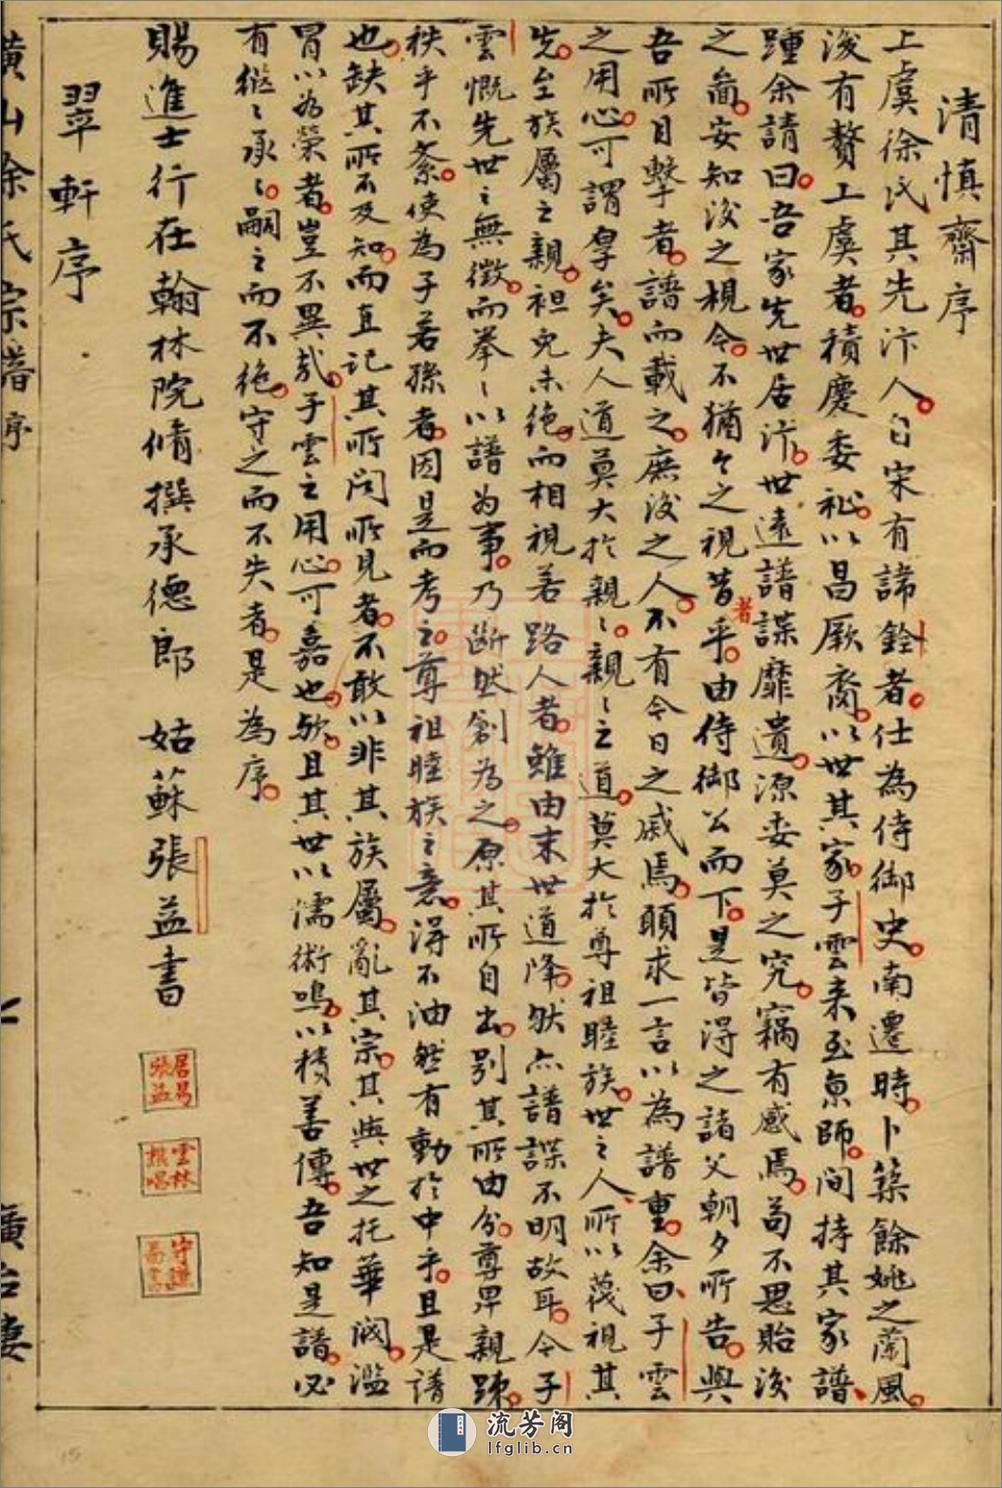 清慎齋序
上虞徐氏其先汴人自宋有諱銓者仕為侍御史南遷時卜築餘姚之蘭風
後有贅上虞者積慶委祉以昌厥裔以世其家子雲来至京師间持其家譜
踵余請曰吾家先世居汴世遠譜諜靡遺源委莫之究竊有感焉苟不思貽後
之啚安知後之視今不猶今之視昔者乎由侍御公而下是皆得之諸父朝夕所告與
吾所目擊者譜而載之庶後之人不有今日之慼焉願求一言以為譜重余曰子雲
之用心可謂厚矣夫人道莫大扵親〻親〻之道莫大扵尊祖睦族世之人所以蔑視其
先至族屬之親袒免未绝而相視若路人者雖由末世道降然亦譜諜不明故耳今子
雲慨先世之無徵而拳〻以譜为事乃断然創為之原其所自出别其所由分尊卑親踈
秩乎不紊使為子若孫者因是而考之尊祖睦族之意得不油然有動扵中乎且是譜
也缺其所不及知而直记其所闻所見者不敢以非其族屬亂其宗其與世之托華閥濫
冒以為榮者豈不異哉子雲之用心可嘉也欤且其世以儒術鳴以積善傳吾知是譜必
有繼〻承〻嗣之而不绝守之而不失者是為序
賜進士行在翰林院脩撰承德郎 姑蘇張益書
居易
張益
雲林
守謙
翠軒序
橫山徐氏宗譜 序
流芳阁
lfglib.cn